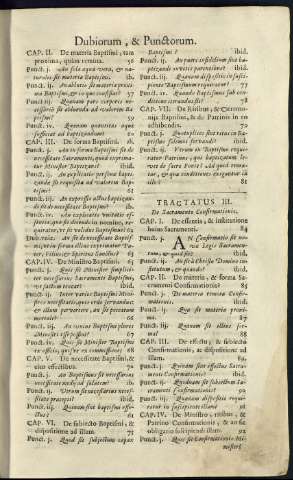 Dubiorum, & Punctorum.
CAP. II. De materia Baptismi, tam
proxima, quàm remota. 56
Punct. j. An sola aqua vera, & na-
turalis sit materia Baptismi. ib.
Punct. ij. An
Baptismi, 57
Punct. iij. Quænam pars corporis ne-
cessariò sit abluenda ad valorem Ba-
ptismi? 59
Punct. iv. Quænam quantitas aquæ
sufficiat ad baptizandum? 60
CAP. III. De forma Baptismi. ib.
Punct. j. An in forma Baptismi sit de
necessitate Sacramenti, quod exprima-
tur Ministri? ibid.
Punct. ij. An explicatio personæ bapti-
zandæ sit requisita ad valorem Bapti-
smi? 61
Punct. iij. An expressio actus baptizan-
di sit de necessitate Baptismi? 62
Punct. iv. An explicatio
63
Dub. unic. An sit de necessitate Bapti-
smi in forma
ter, Filius, & Spiritus Sanctus? 63
CAP. IV. De Ministro Baptismi. 65
Punct. j. Quis sit Minister
Sacramenti Baptismi,
ibid.
Punct. ij. Inter varios Baptismi Mini-
stros
66
Punct. iij. An unius Baptismi plures
Ministri esse possint? 67
Punct. iv. Quæ sit Minister Baptismi
ex officio, quis ex commissione? 68
CAP. V. De necessitate Baptismi, &
ejus effectibus. 70
Punct. j. An Baptismus sit necessarius
necessitate medij ad salutem? ib.
Punct. ij. Utrum sit necessarius necessi-
tate præcepti? ibid.
Punct. iij. Quinam sint Baptismi effe-
ctus? 72
CAP. VI. De subjecto Baptismi, &
dispositione ad illum. 75
Punct. j. Quod sit subjectum capax
Baptismi? ibid.
Punct. ij. An pueri infidelium sint ba-
ptizandi invitis parentibus? ibid.
Punct. iij. Quænam dispositio in susci-
piente Baptismum requiratur? 77
Punct. iv. Quando Baptismus sub con-
ditione iterandus sit? 78
CAP. VII. De Ritibus, & Cæremo-
nijs Baptismi, & de Patrino in eo
adhibendo. 79
Punct. j. Quot, & quales sint ritus in Ba-
ptismo solemni servandi? ibid.
Punct. ij. Utrum in Baptismo requi-
ratur Patrinus, qui baptizatum le-
vet de sacro Fonte? Ad quid tenea-
tur, & quæ conditiones exigantur in
illo? 81
TRACTATUS III.
De Sacramento Confirmationis.
CAP. I. De essentia, & institutione
hujus Sacramenti. 84
Punct. j. AN Confirmatio sit no-
væ Legis Sacramen-
tum, & quid sit? ibid.
Punct. ij. An sit à Christo Domino in-
stitutum, & quando? ibid.
CAP. II. De materia, & forma Sa-
cramenti Confirmationis? 85
Punct. j. De materia remota Confir-
mationis. ibid.
Punct. ij. Quæ sit materia proxi-
ma. 87
Punct. iij. Quænam sit illius for-
ma? 88
CAP. III. De effectu, & subjecto
Confirmationis, & dispositione ad
illam. 89
Punct. j. Quinam sint effectus Sacra-
menti Confirmationis? ibid.
Punct. ij. Quodnam sit subjectum Sa-
cramenti Confirmationis? ibid.
Punct. iij. Quænam dispositio requi-
ratur in suscipiente illam? 91
CAP. IV. De Ministro, ritibus, &
Patrino Confirmationis, & an sit
obligatio suscipiendi illam. 92
Punct. j. Quis sit Confirmationis Mi-
nister?